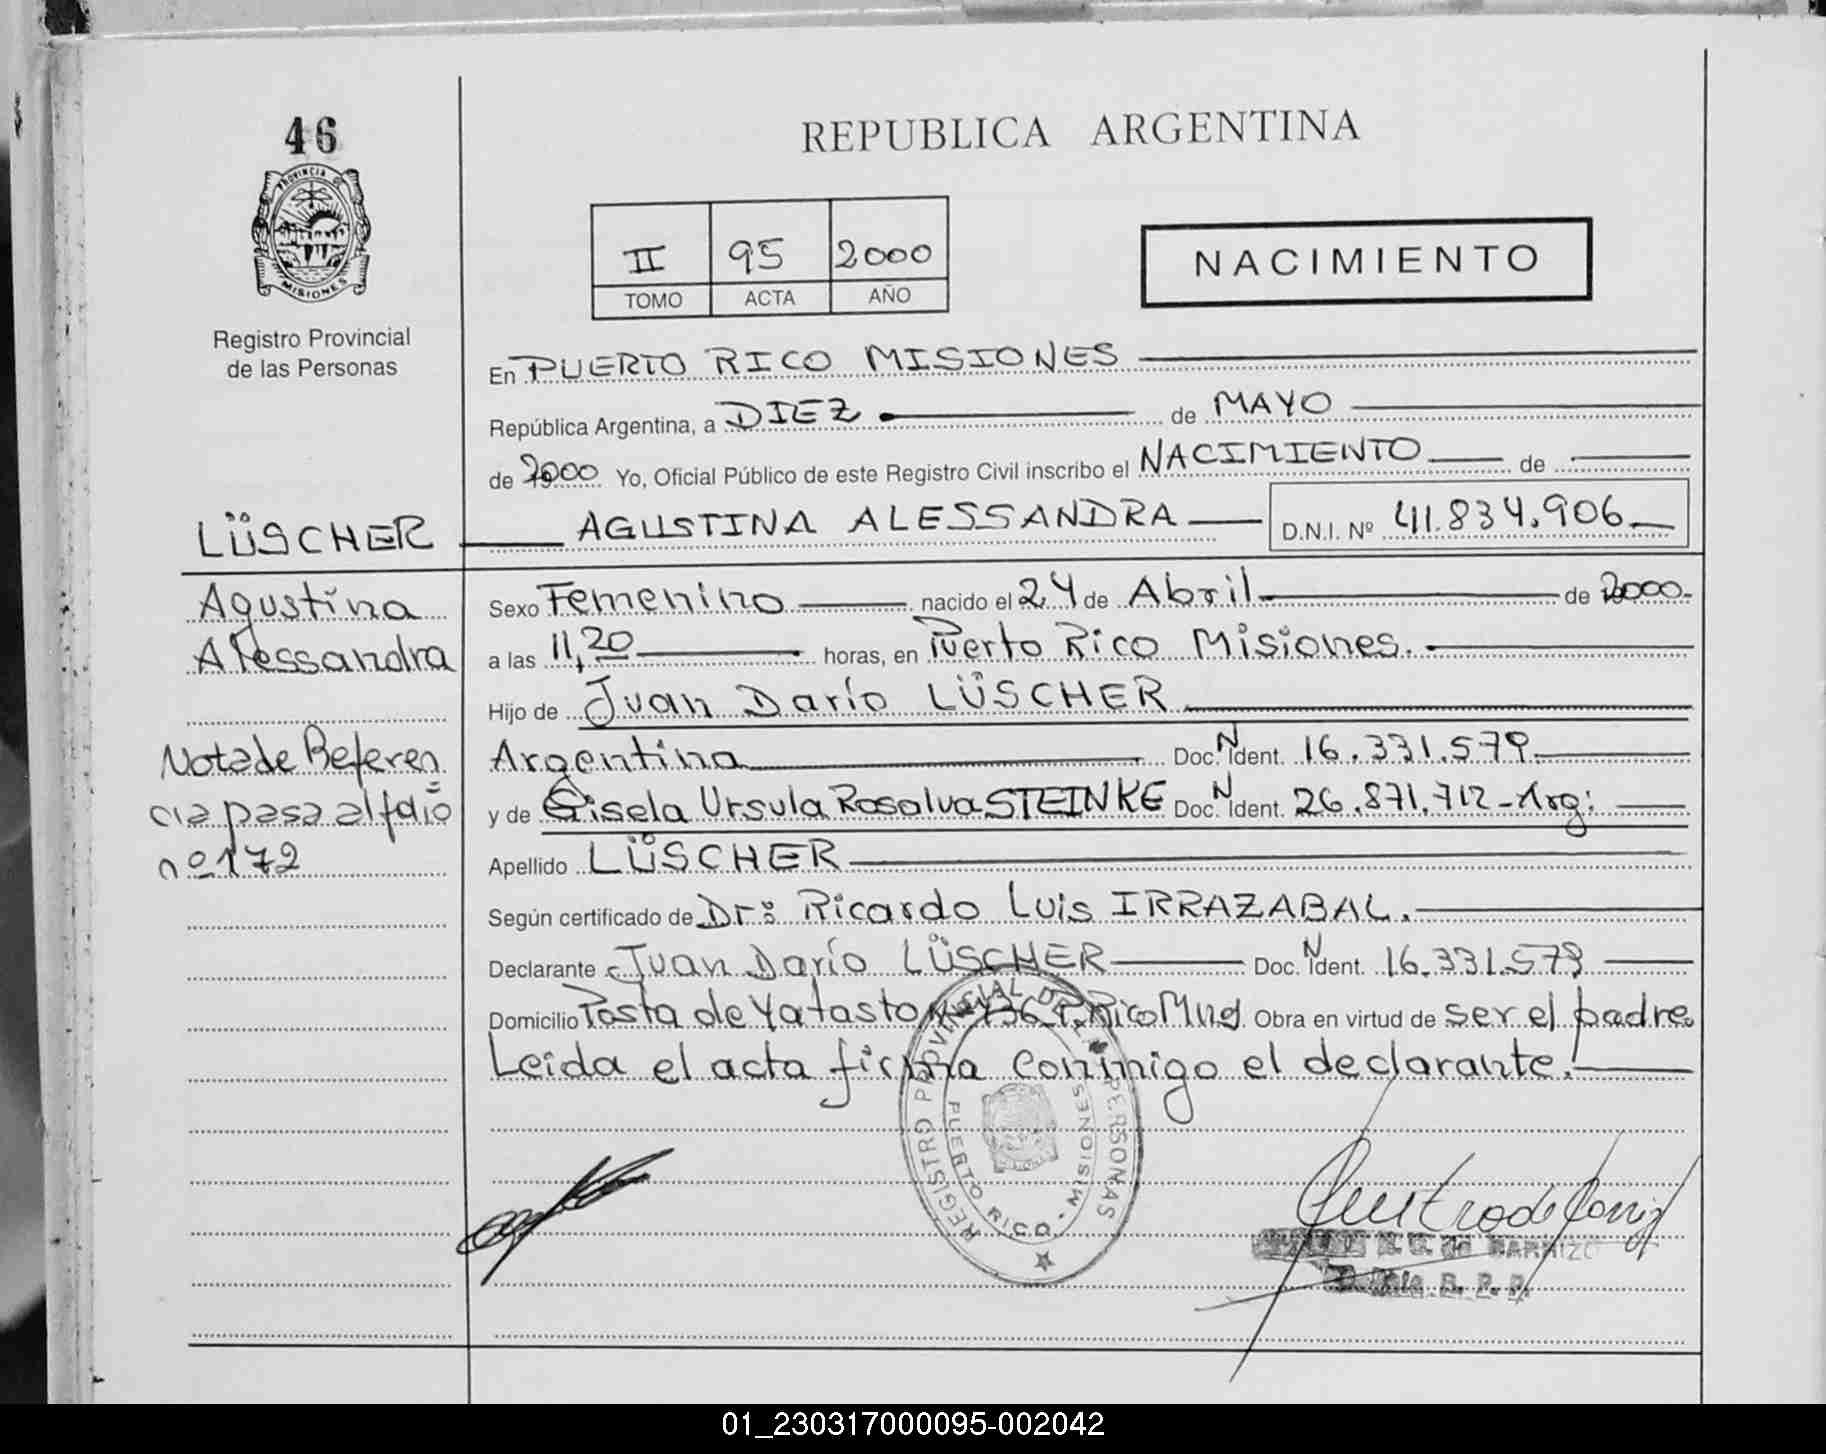 46
PROVINCIA DE
MISIONES
Registro Provincial
de las Personas
REPUBLICA ARGENTINA
II 95 2000
TOMO ACTA AÑO
NACIMIENTO
En PUERTO RICO MISIONES
República Argentina, a DIEZ de MAYO
de 2000 Yo, Oficial Público de este Registro Civil inscribo el NACIMIENTO de
LÜSCHER AGUSTINA ALESSANDRA D.N.I. Nº 41.834.906
Agustina
Alessandra
Nota de Referen
cia pasa al folio
nº 172
Sexo Femenino nacido el 24 de Abril de 2000
a las 11,20 horas, en Puerto Rico Misiones.
Hijo de Juan Darío LÜSCHER
Argentina Doc. N Ident. 16.331.579
y de Gisela Ursula Rosalva STEINKE Doc. N Ident. 26.871.712 - Arg:
Apellido LÜSCHER
Según certificado de Dr: Ricardo Luis IRRAZABAL.
Declarante Juan Darío LÜSCHER Doc. N Ident. 16.331.579
Domicilio Posta de Yatasto Nº 736 P. Rico Mnes. Obra en virtud de ser el padre
Leida el acta firma conmigo el declarante.
REGISTRO PROVINCIAL DE LAS PERSONAS
PUERTO RICO - MISIONES
01_230317000095-002042